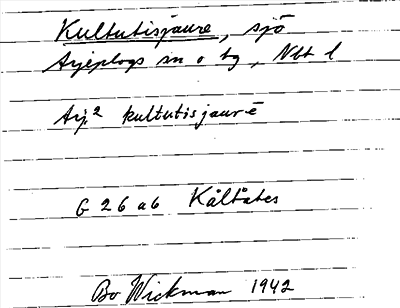 Kultutisjaure, sjö
Arjeplogs sn o tg, Nbt l
Arj.² kultutisjaurē
G 26 a6 Kåltåtes
Bo Wickman 1942